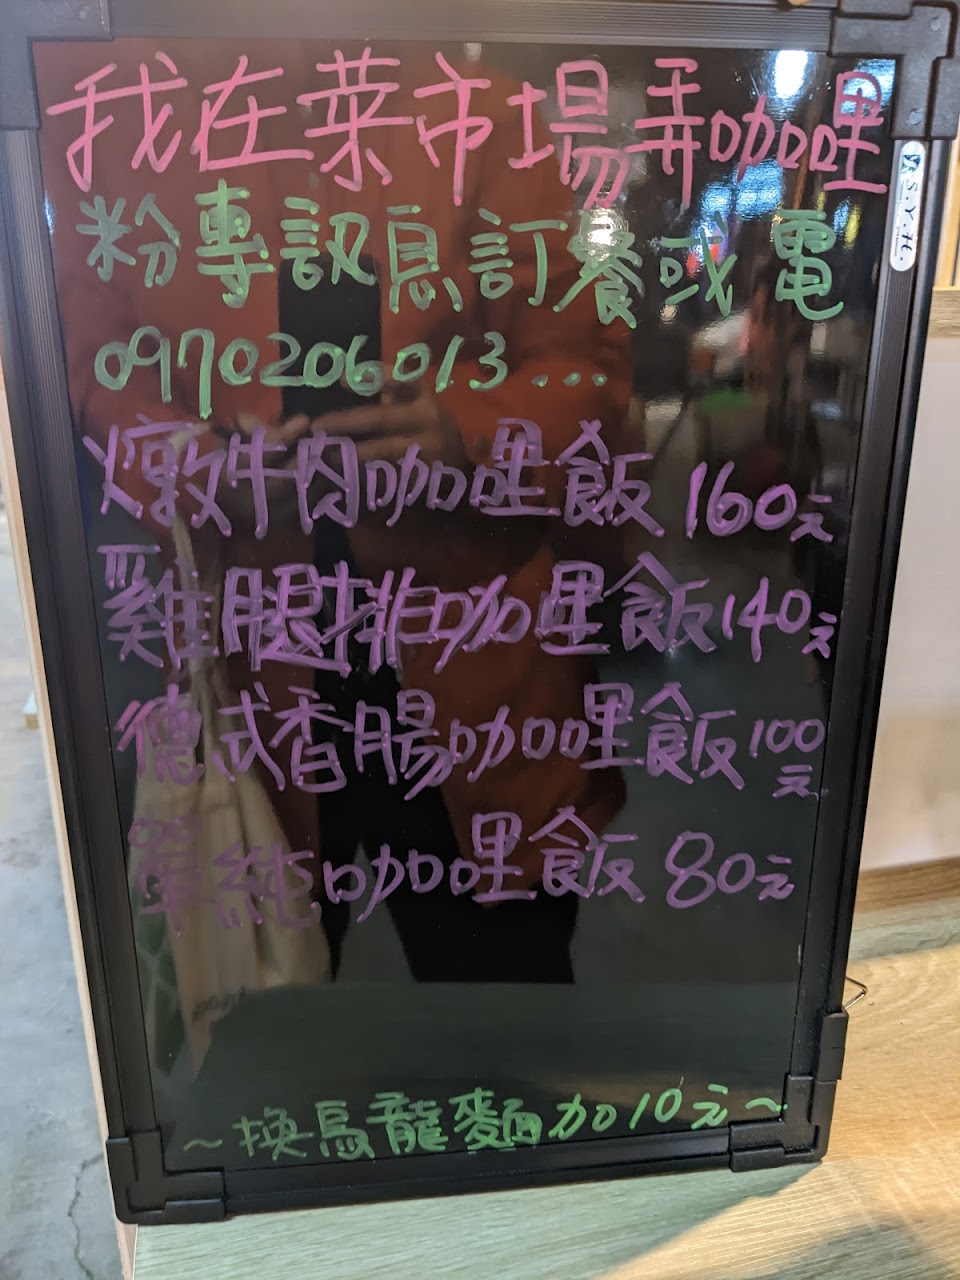 我在菜市場弄咖哩
粉專訊息訂餐或電
0970206013...
燉牛肉咖哩飯 160元
雞腿排咖哩飯 140元
德式香腸咖哩飯 100元
單純咖哩飯 80元
~換烏龍麵加10元~
S.Y.H.